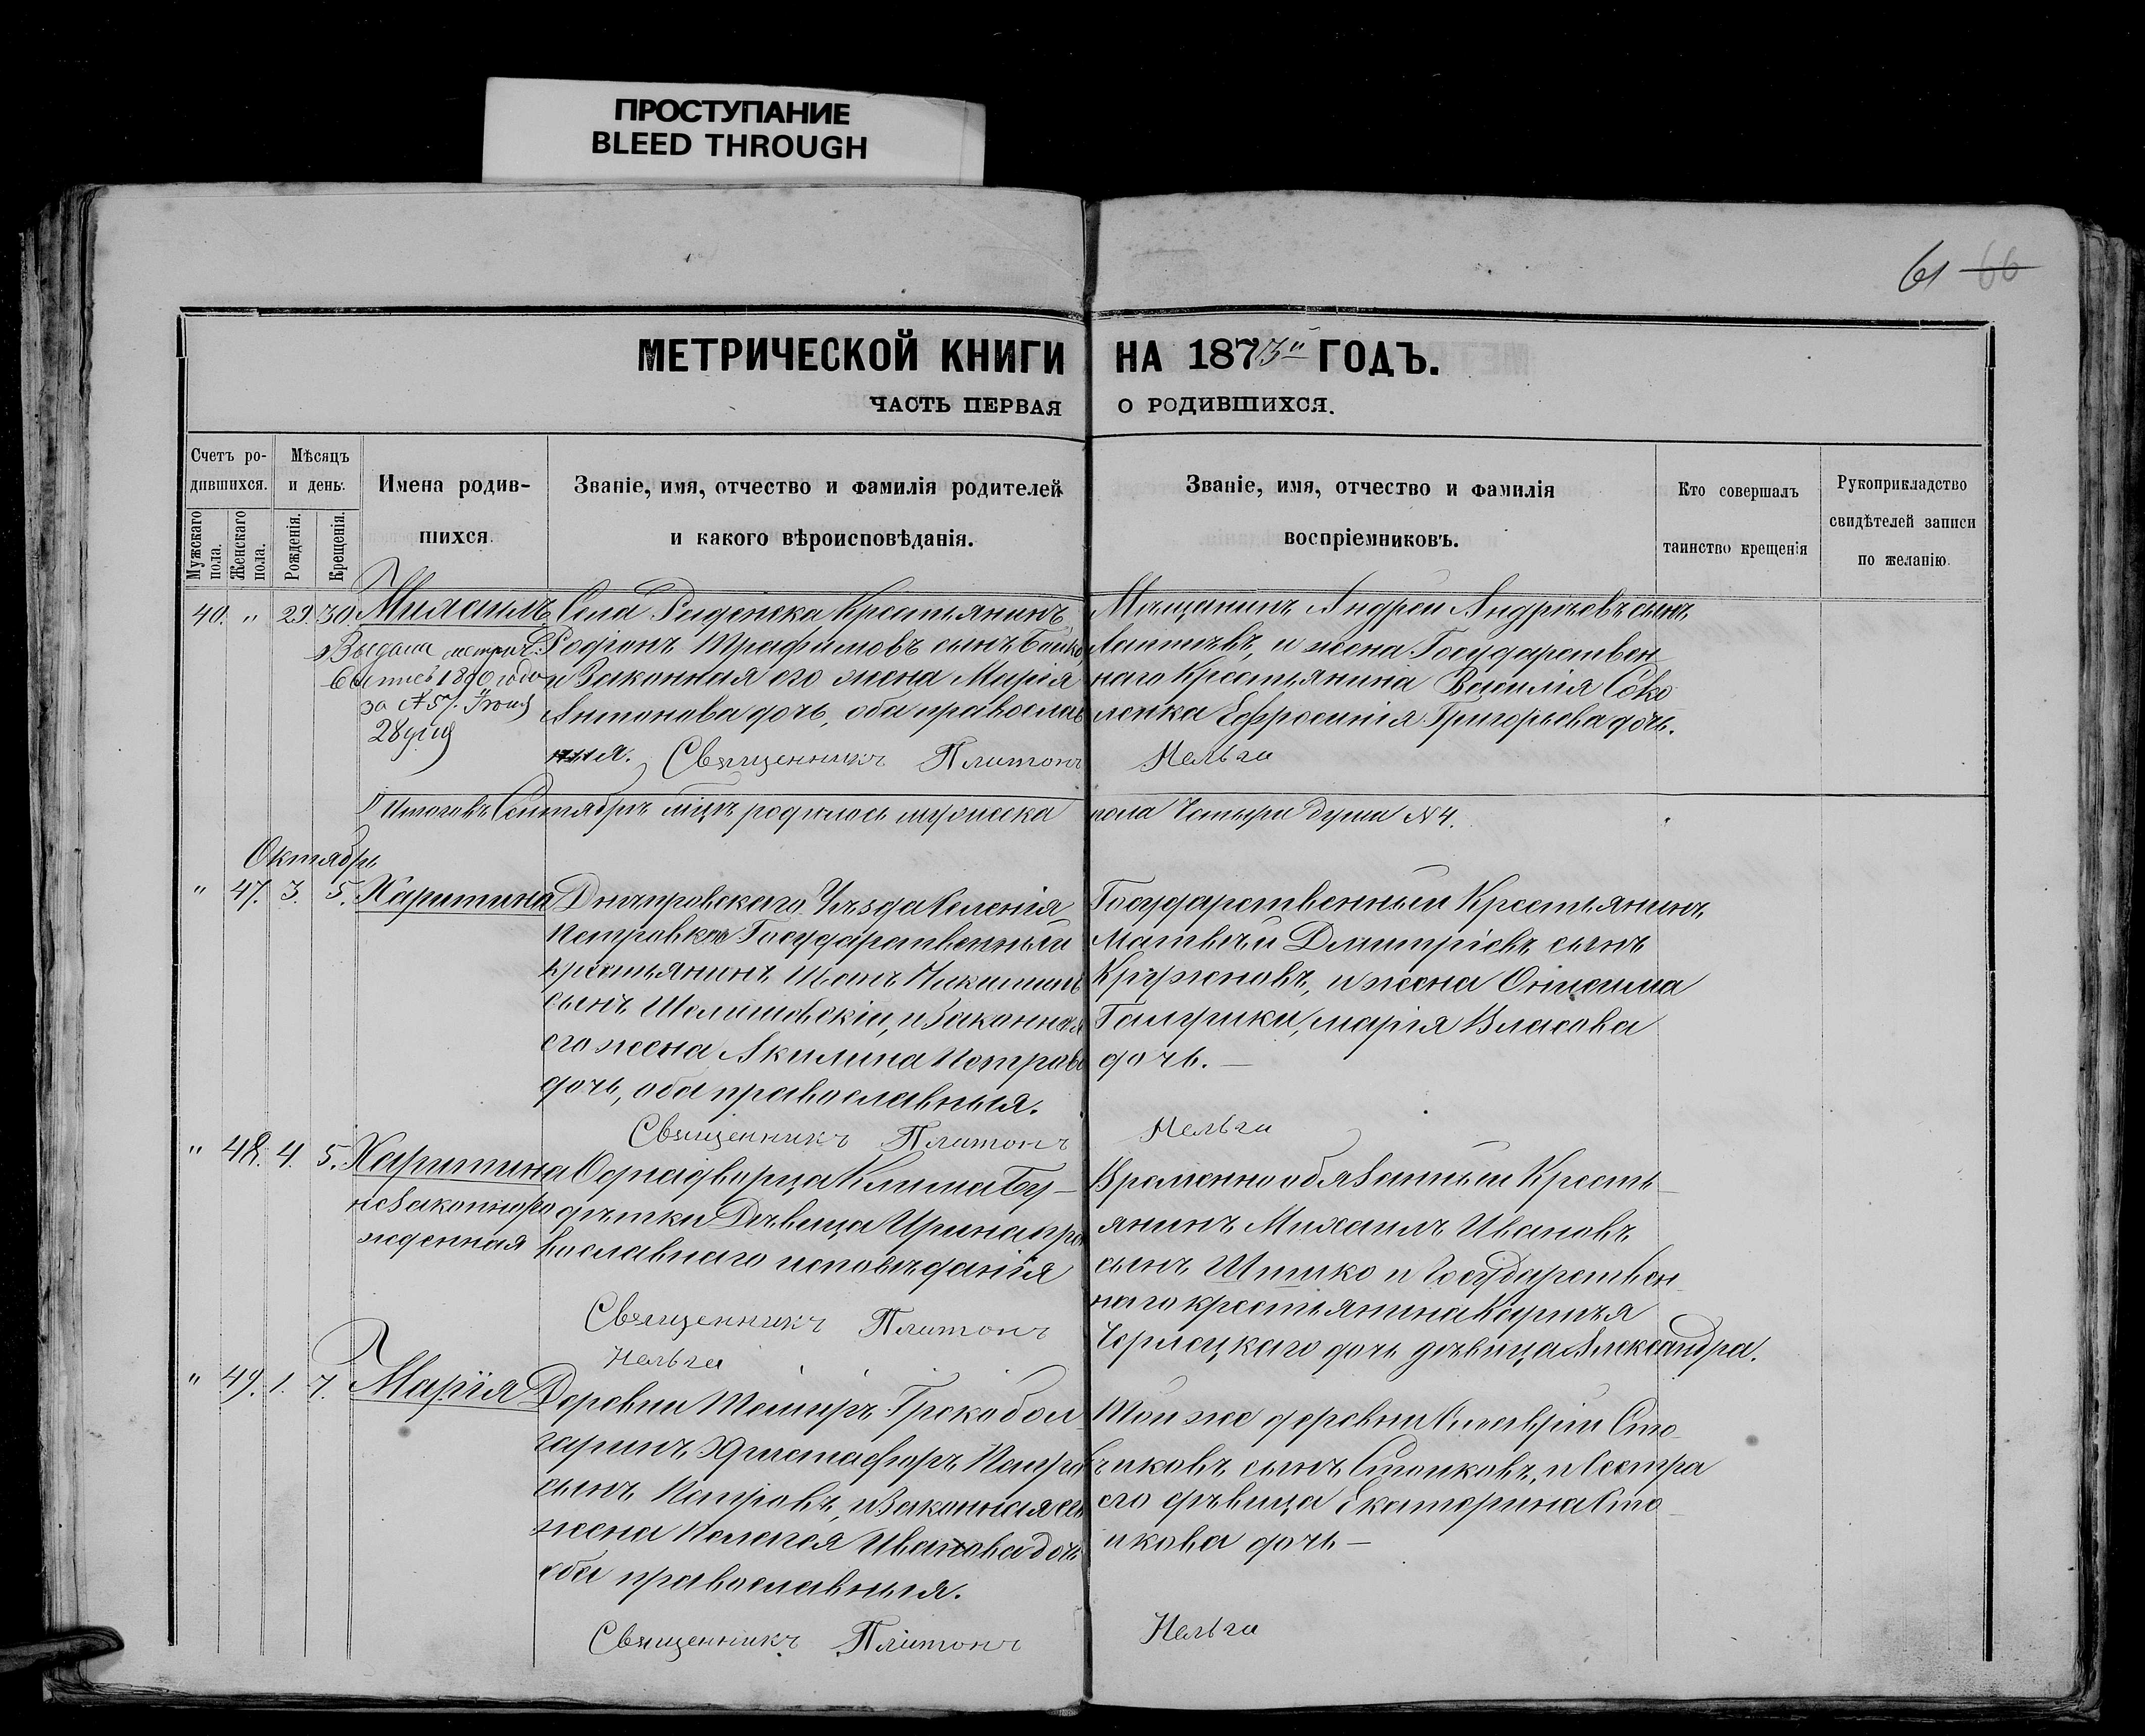 ПРОСТУПАНИЕ
BLEED THROUGH
61 66
МЕТРИЧЕСКОЙ КНИГИ НА 1873й ГОДЪ.
ЧАСТЬ ПЕРВАЯ О РОДИВШИХСЯ.
Счетъ ро-
дившихся.
Мужскаго пола.
Женскаго пола.
Мѣсяцъ
и день.
Рожденія.
Крещенія.
Имена родив-
шихся
Званіе, имя, отчество и фамилія родителей
и какого вѣроисповѣданія.
Званіе, имя, отчество и фамилія
воспріемниковъ.
Кто совершалъ
таинство крещенія
Рукоприкладство
свидѣтелей записи
по желанію.
40. " 29. 30. Михаилъ
Выдана метрич.
1890 года
за № 57. Июня
28 дня
Села Раденска Крестьянинъ
Родіонъ Трафимовъ сынъ
и Законная его жена Марія
Антонова дочь, оба православ
ныя. Священникъ Платонъ
Мѣщанинъ Андрей Андрѣевъ сынъ
Лаптѣвъ, и жена Государствен
наго Крестьянина Василія Соко
ленка Ефросинія Григорьева дочь.
Нельга
Итого въ Сентябрѣ мцѣ родилось мужеска пола Четыри души №4.
Октябрь
" 47. 3. 5. Харитина
Днѣпровскаго Уѣзда Селенія
Петровки Государственный
крестьянинъ Никитинъ
сынъ и Законная
его жена Акилина Петрова
дочь, оба православныя.
Священникъ Платонъ
Государственный Крестьянинъ
Матвѣй Дмитріевъ сынъ
Кружновъ, и жена Онисима
Галушки, Марія Власова
дочь.—
Нельга
" 48. 4. 5. Харитина
незаконнаро
жденная
Однадворца Клима Бу-
дѣтки Дѣвица Ирина пра
вославнаго исповѣданія
Священникъ Платонъ
Нельга
Временно обязанный Кресть-
янинъ Михаилъ Ивановъ
сынъ Шпико и Государствен
наго крестьянина Корнѣя
дочь дѣвица Александра.
" 49. 1. 7. Марія
Деревни Грекобол
гаринъ Христафоръ
сынъ и Законная его
жена Пелагея Иванова дочь
оба православныя.
Священникъ Платонъ
Той же деревни Сто-
иковъ сынъ Стоиковъ, и Сестра
его дѣвица Екатерина Сто-
икова дочь—
Нельга